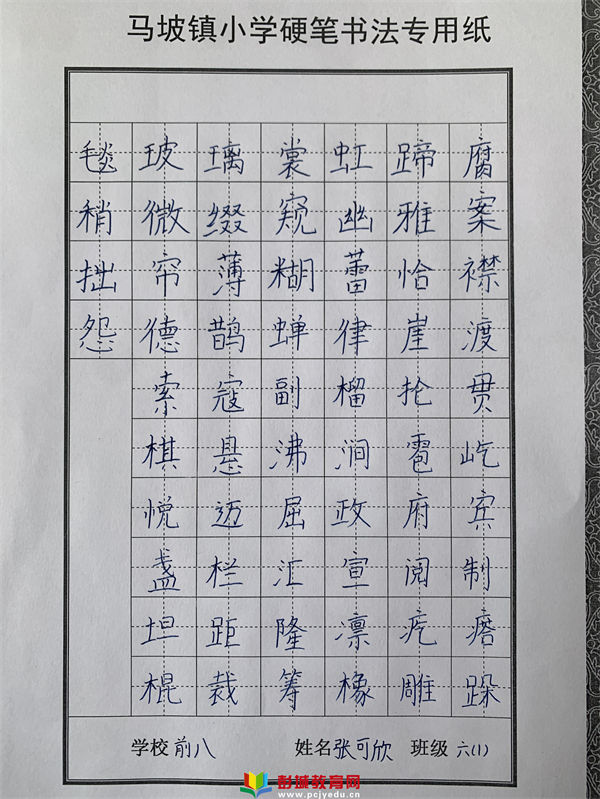 马坡镇小学硬笔书法专用纸
毯玻璃裳虹蹄腐
稍微缀窥幽雅案
拙帘薄糊蕾恰襟
怨德鹊蝉律崖渡
索寇副榴抡贯
棋悬沸涧雹屹
悦迈屈政府宾
盏栏汇宣阅制
坦距隆凛疙瘩
棍裁筹橡雕跺
学校 前八 姓名 张可欣 班级 六(1)
彭城教育网
www.pcjyedu.cn